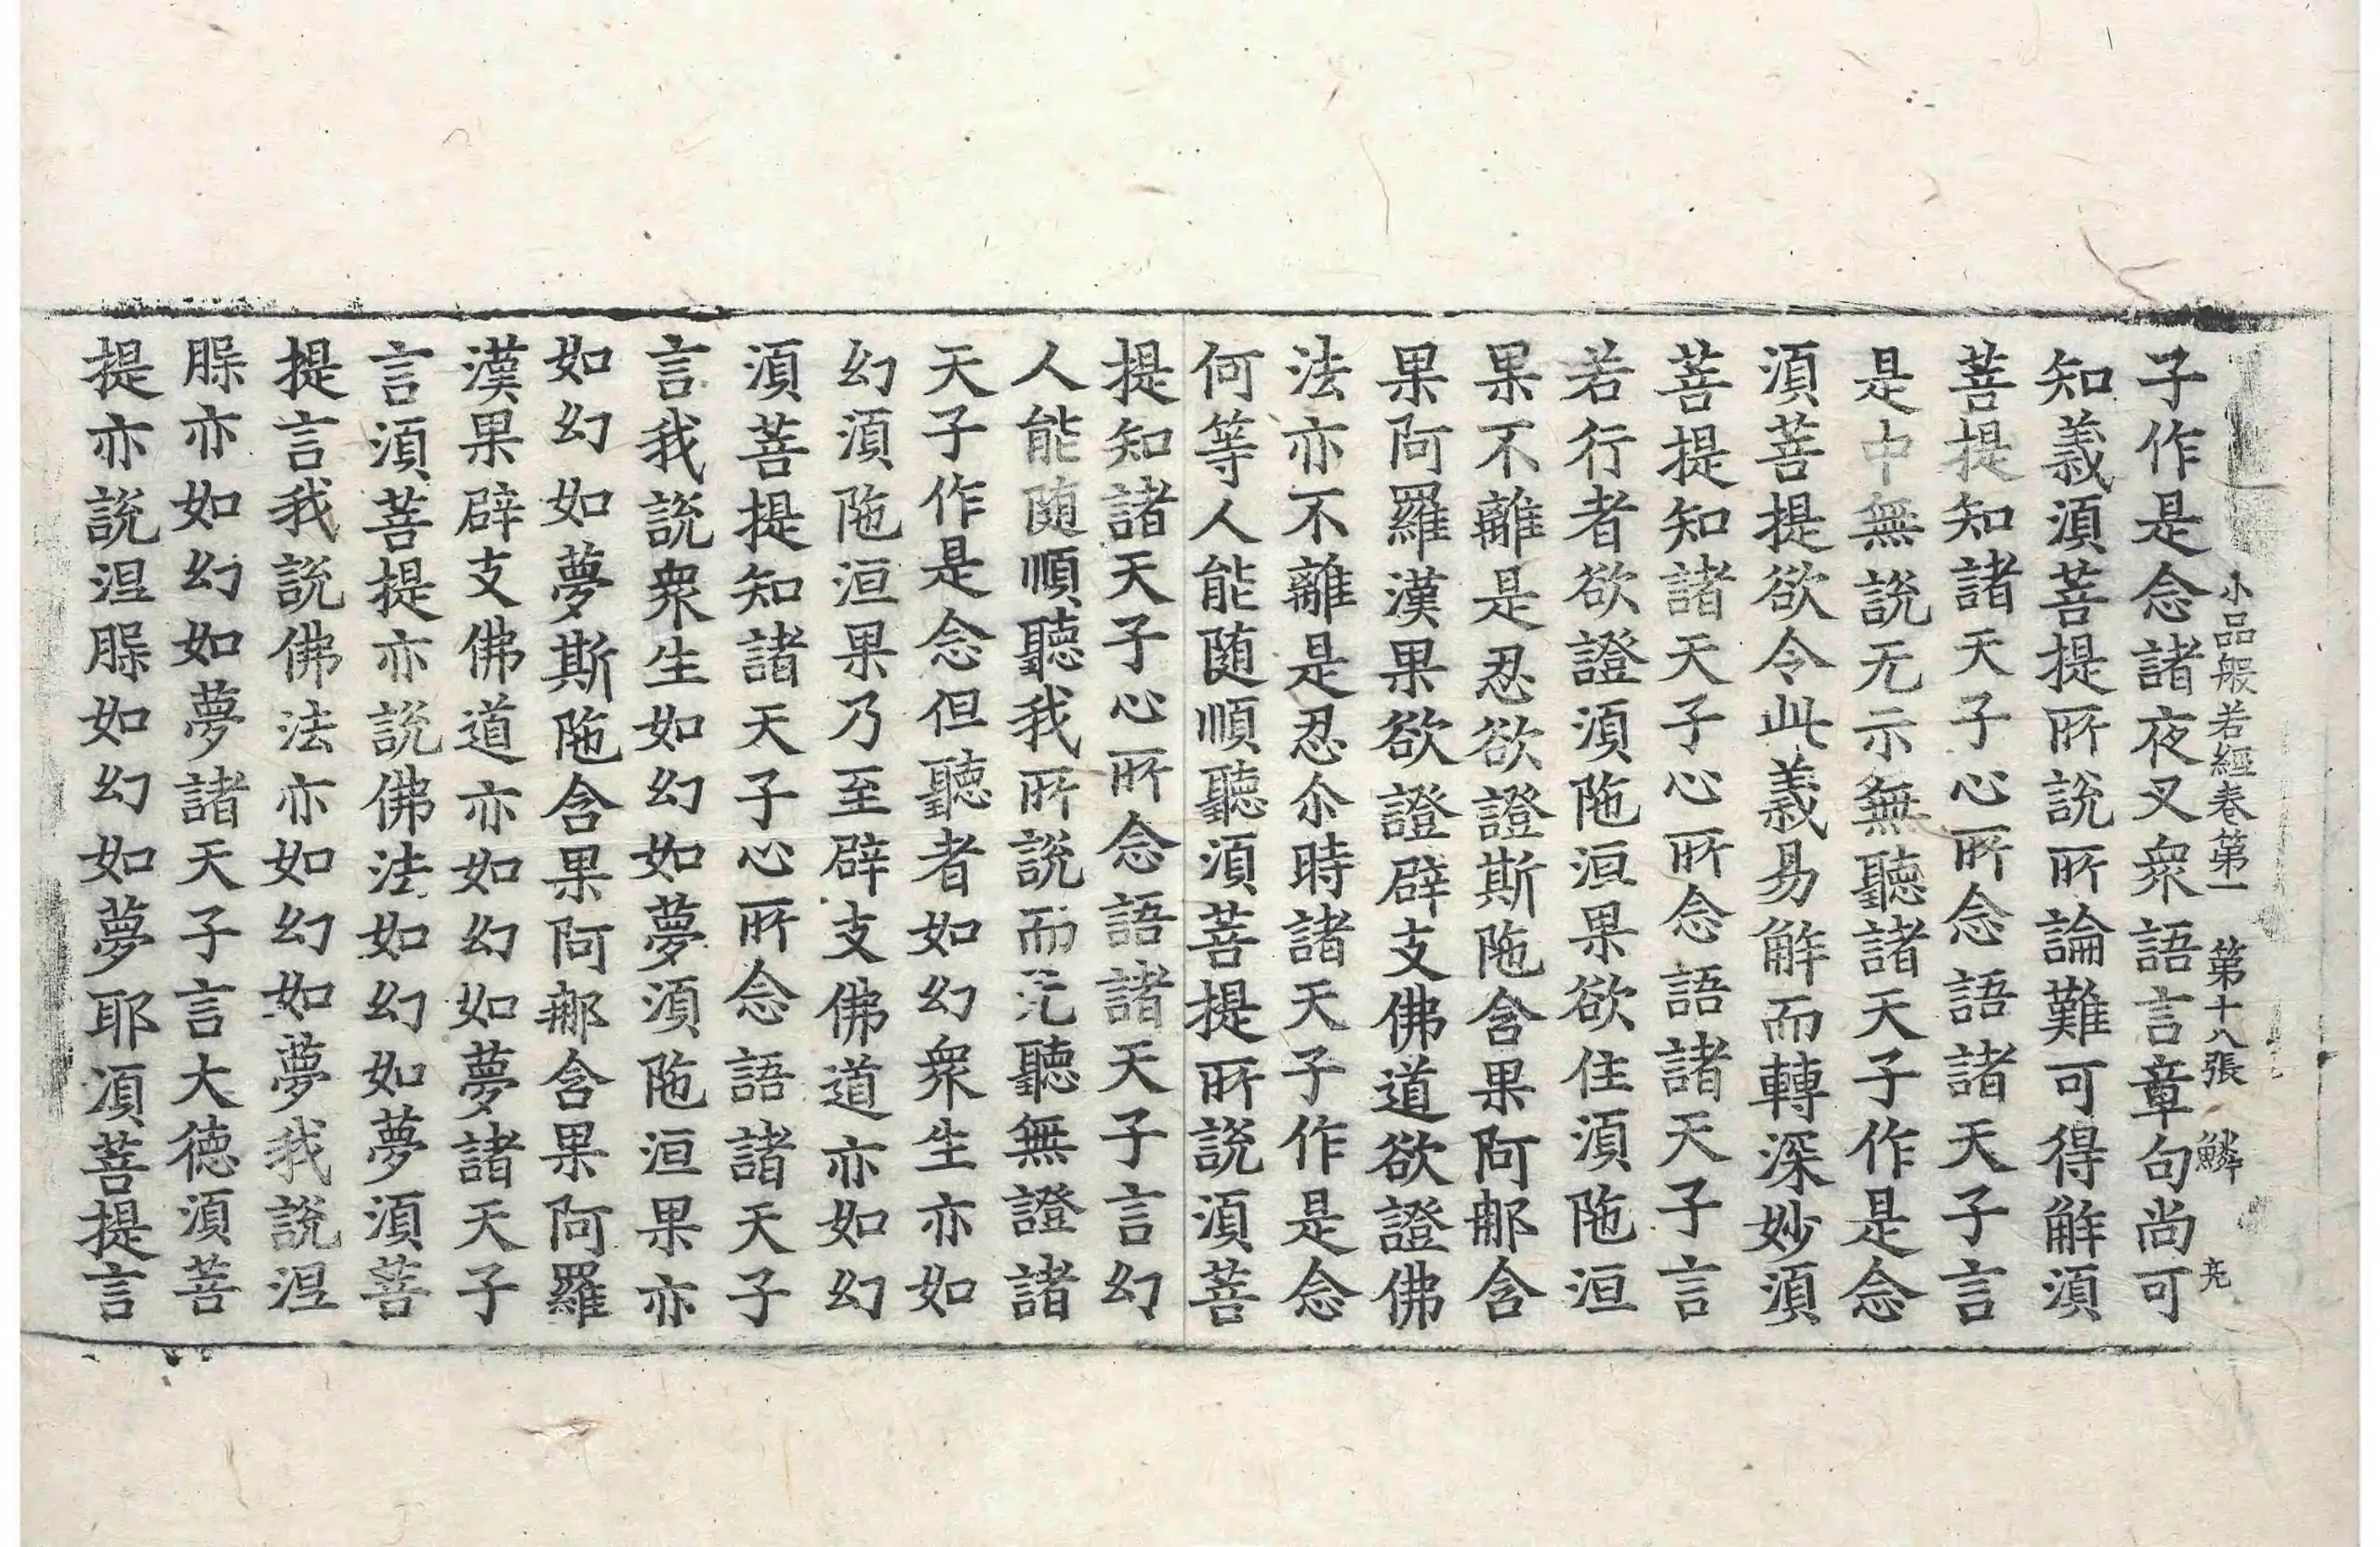 小品般若經卷第一 第十八張 鱗
亮
子作是念諸夜叉衆語言章句尚可
知義湏菩提所說所論難可得解湏
菩提知諸天子心所念語諸天子言
是中無說无示無聽諸天子作是念
湏菩提欲令此義易解而轉深妙湏
菩提知諸天子心所念語諸天子言
若行者欲證湏陁洹果欲住湏陁洹
果不離是忍欲證斯陁含果阿那含
果阿羅漢果欲證辟支佛道欲證佛
法亦不離是忍尒時諸天子作是念
何等人能随順聽湏菩提所說湏菩
提知諸天子心所念語諸天子言幻
人能随順聽我所說而无聽無證諸
天子作是念但聽者如幻衆生亦如
幻湏陁洹果乃至辟支佛道亦如幻
湏菩提知諸天子心所念語諸天子
言我說衆生如幻如夢湏陁洹果亦
如幻如夢斯陁含果阿那含果阿羅
漢果辟支佛道亦如幻如夢諸天子
言湏菩提亦說佛法如幻如夢湏菩
提言我說佛法亦如幻如夢我說涅
槃亦如幻如夢諸天子言大德湏菩
提亦說涅槃如幻如夢耶湏菩提言